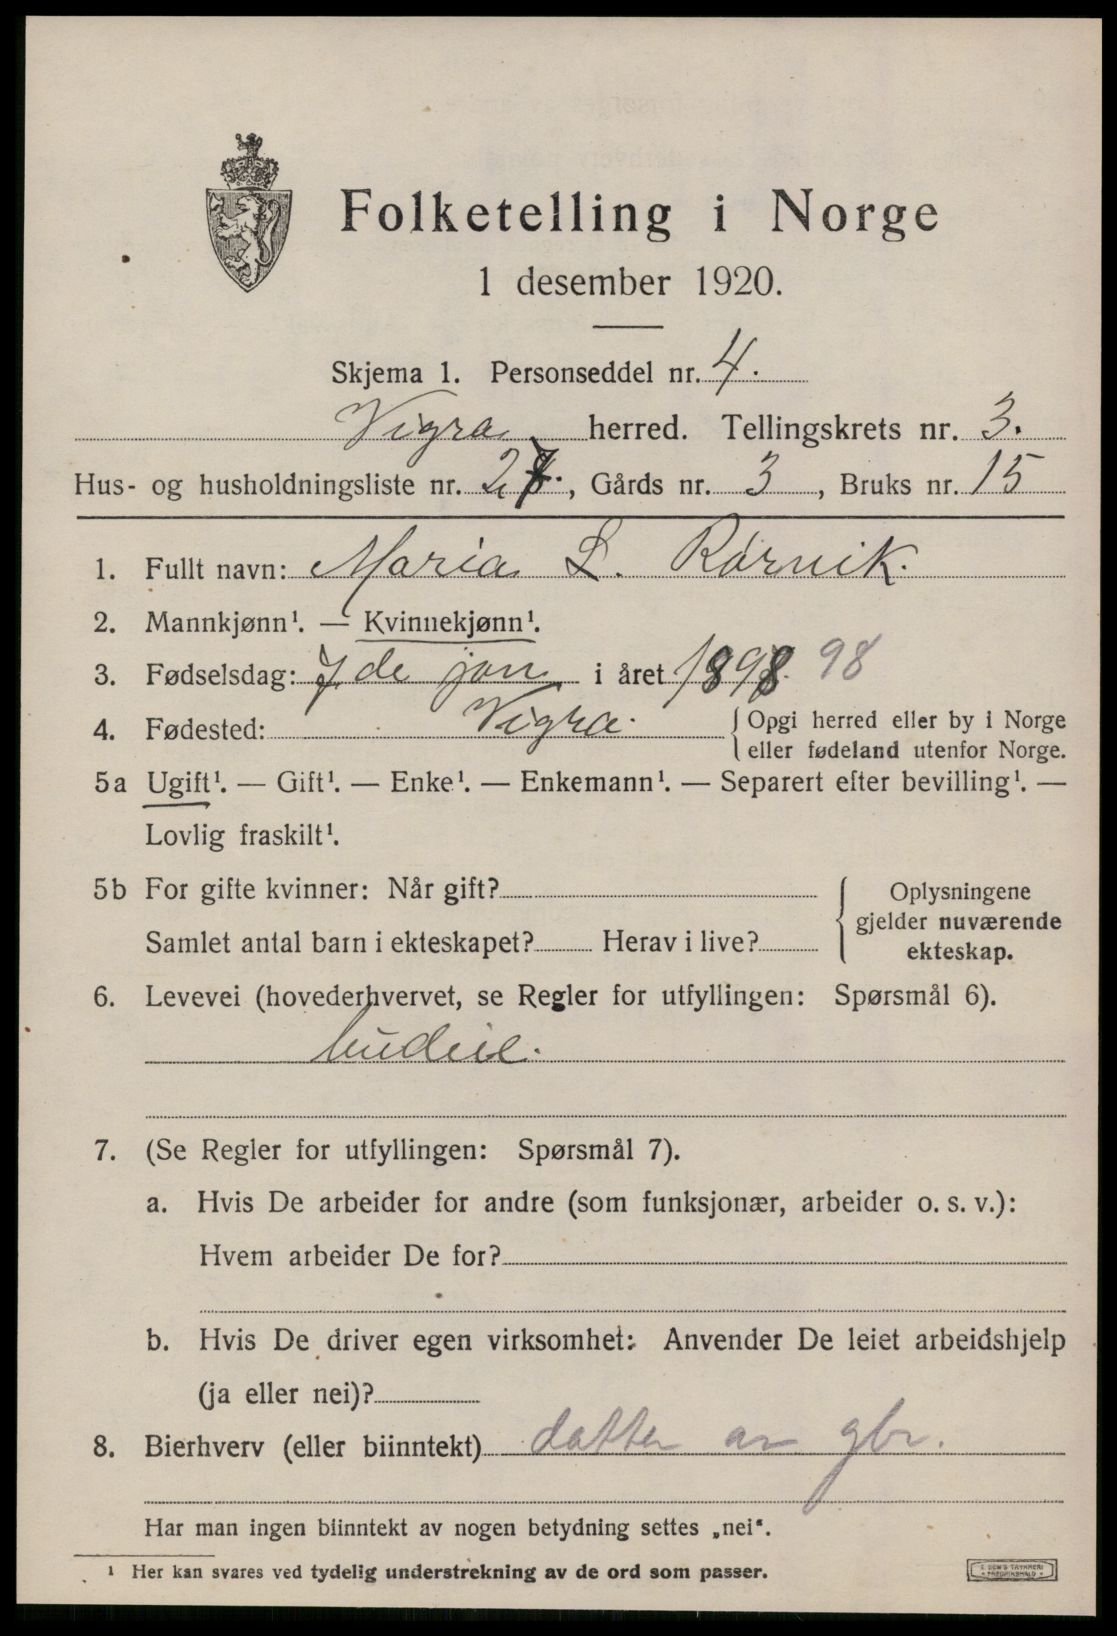 Folketelling i Norge
1 desember 1920.
Skjema 1. Personseddel nr. 4.
Vigra herred. Tellingskrets nr. 3.
Hus- og husholdningsliste nr. 27., Gårds nr. 3, Bruks nr. 15
1. Fullt navn: Maria L. Rørvik.
2. Mannkjønn¹. — Kvinnekjønn¹.
3. Fødselsdag: 7de jan. i året 1898. 98
4. Fødested: Vigra. { Opgi herred eller by i Norge
eller fødeland utenfor Norge.
5a Ugift¹. — Gift¹. — Enke¹. — Enkemann¹. — Separert efter bevilling¹. —
Lovlig fraskilt¹.
5b For gifte kvinner: Når gift?
Samlet antal barn i ekteskapet? Herav i live?
{ Oplysningene
gjelder nuværende
ekteskap.
6. Levevei (hovederhvervet, se Regler for utfyllingen: Spørsmål 6).
budeie.
7. (Se Regler for utfyllingen: Spørsmål 7).
a. Hvis De arbeider for andre (som funksjonær, arbeider o. s. v.):
Hvem arbeider De for?
b. Hvis De driver egen virksomhet: Anvender De leiet arbeidshjelp
(ja eller nei)?
8. Bierhverv (eller biinntekt) datter av gbr.
Har man ingen biinntekt av nogen betydning settes „nei“.
¹ Her kan svares ved tydelig understrekning av de ord som passer.